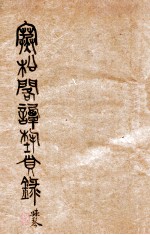 寒松閣談藝瑣錄